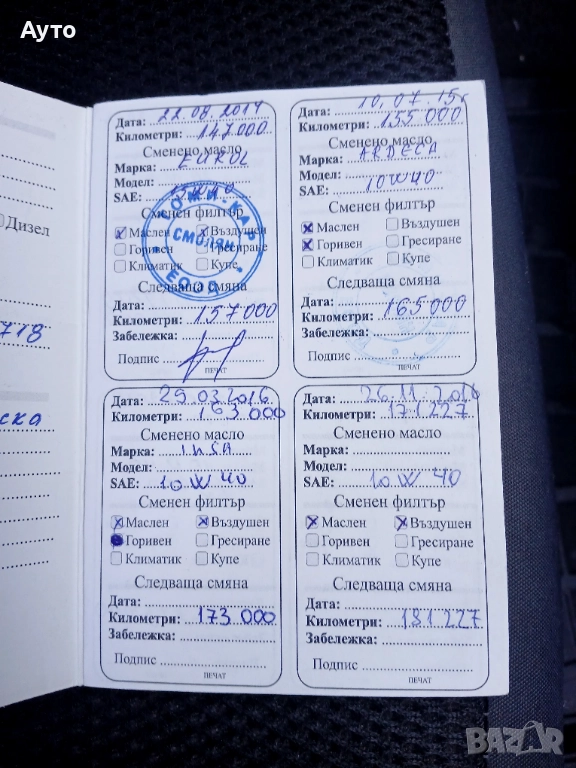 Ауто
Дизел
718
ска
Дата: 22.08.2014
Километри: 147000
Сменено масло
Марка: EUROL
Модел:
SAE:
Сменен филтър
Маслен Въздушен
Горивен Гресиране
Климатик Купе
СМОЛЯН
ЕООД
Следваща смяна
Дата:
Километри: 157000
Забележка:
Подпис
ПЕЧАТ
Дата: 10.07.15г
Километри: 155000
Сменено масло
Марка: ARDECA
Модел:
SAE: 10W40
Сменен филтър
Маслен Въздушен
Горивен Гресиране
Климатик Купе
Следваща смяна
Дата:
Километри: 165000
Забележка:
Подпис
ПЕЧАТ
Дата: 25.03.2016
Километри: 163000
Сменено масло
Марка: INSA
Модел:
SAE: 10W40
Сменен филтър
Маслен Въздушен
Горивен Гресиране
Климатик Купе
Следваща смяна
Дата:
Километри: 173.000
Забележка:
Подпис
ПЕЧАТ
Дата: 26.11.2016
Километри: 171.227
Сменено масло
Марка:
Модел:
SAE: 10W40
Сменен филтър
Маслен Въздушен
Горивен Гресиране
Климатик Купе
Следваща смяна
Дата:
Километри: 181.227
Забележка:
Подпис
ПЕЧАТ
BAZAR